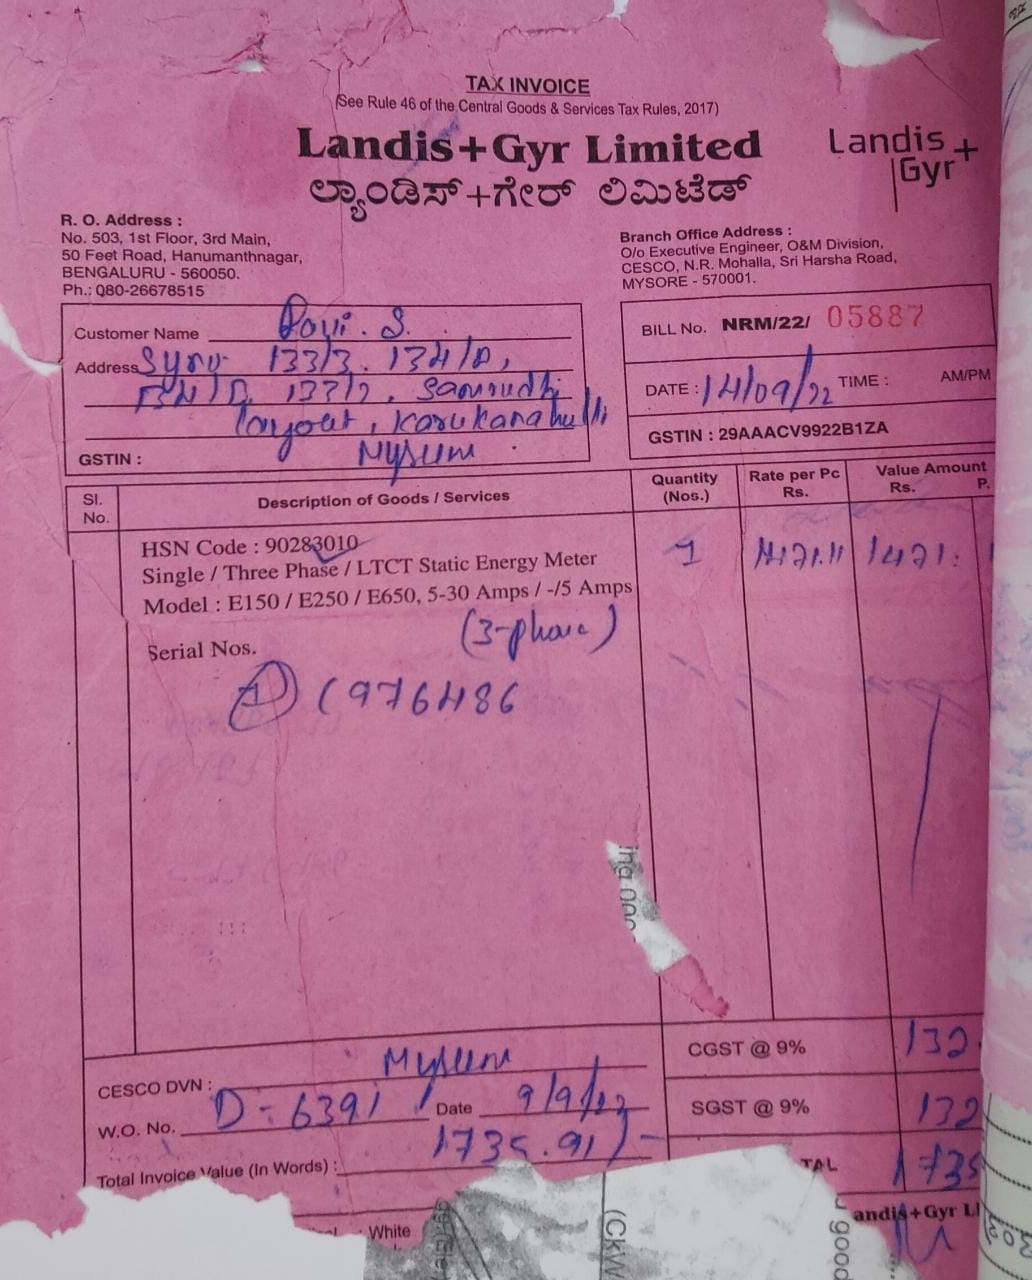 TAX INVOICE
(See Rule 46 of the Central Goods & Services Tax Rules, 2017)
Landis+Gyr Limited
ಲ್ಯಾಂಡಿಸ್+ಗೇರ್ ಲಿಮಿಟೆಡ್
Landis
Gyr+
R. O. Address :
No. 503, 1st Floor, 3rd Main,
50 Feet Road, Hanumanthnagar,
BENGALURU - 560050.
Ph.: 080-26678515
Branch Office Address :
O/o Executive Engineer, O&M Division,
CESCO, N.R. Mohalla, Sri Harsha Road,
MYSORE - 570001.
Customer Name
Address 133/3. 134/
133/2, Samrudhi
layout,
GSTIN :
BILL No. NRM/22/ 05887
DATE : 14/09/22 TIME : AM/PM
GSTIN : 29AAACV9922B1ZA
Sl. No. Description of Goods / Services Quantity (Nos.) Rate per Pc Rs. Value Amount Rs. P.
HSN Code : 90283010 1 1471.11 1471.
Single / Three Phase / LTCT Static Energy Meter
Model : E150 / E250 / E650, 5-30 Amps / -/5 Amps
Serial Nos. (3-phase)
1) 1976486
CGST @ 9% 132.
CESCO DVN :
SGST @ 9% 132
W.O. No. D-6391 Date 9/9/22
Total Invoice Value (In Words) : 1735.91/-
TAL 1735
andis+Gyr Li
White